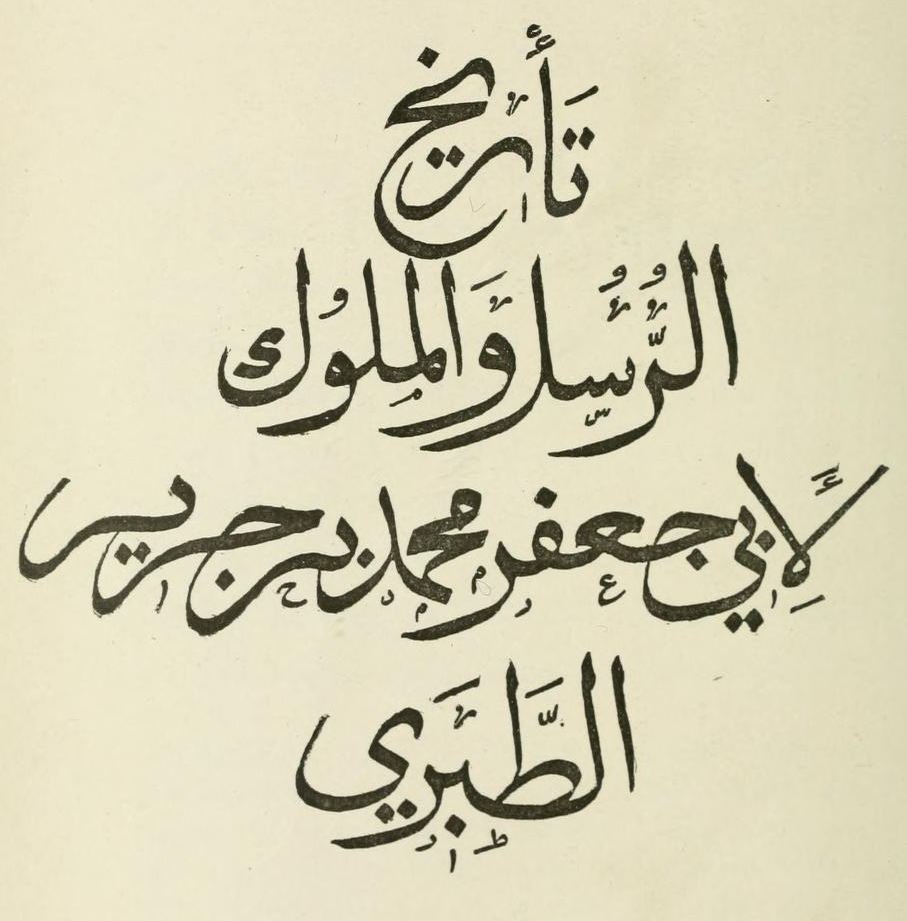 تأريخ
الرُّسُل وَالملُوك
لِأَبي جعفر محمد بن جرير
الطَّبَري